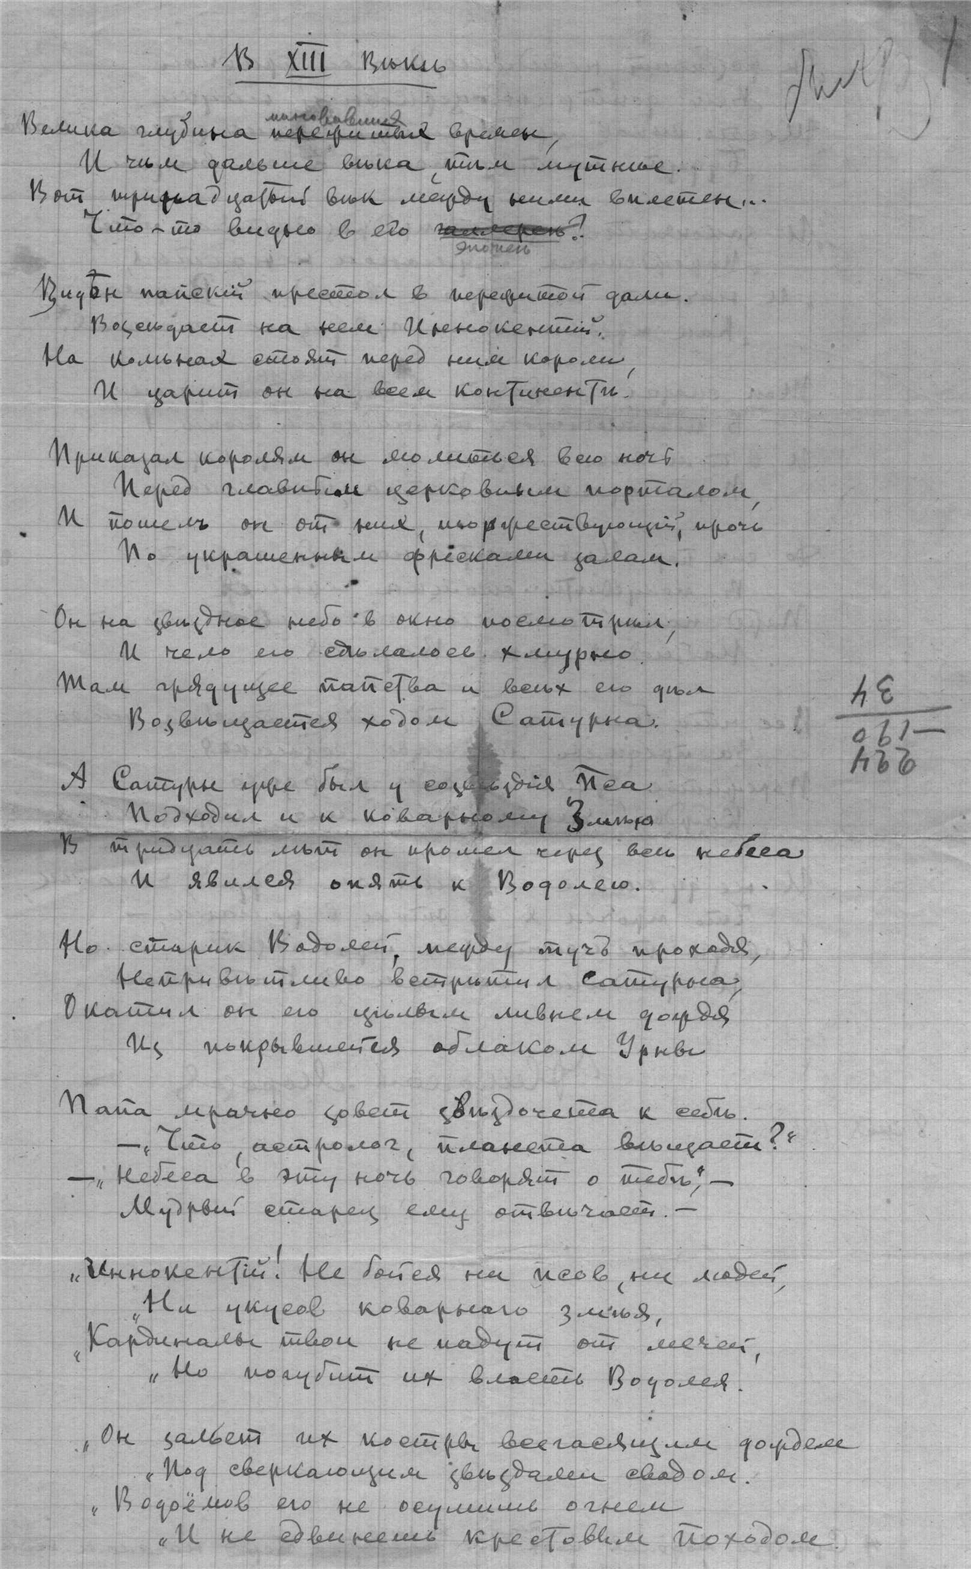 В XIII Вѣкѣ
миновавшихъ
Велика глубина пережитых времен,
И чѣм дальше вѣка, тѣм мутнѣе.
Вот тринадцатый вѣк между ними вплетен...
Что-то видно в его галлереѣ?
Видѣн папскій престол в пережитой дали.
Возсѣдает на нем Иннокентій.
На колѣнах стоят перед ним короли,
И царит он на всем континентѣ.
Приказал королям он молиться всю ночь
Перед главным церковным порталом,
И пошелъ он от них, торжествующій, прочь
По украшенным фресками залам.
Он на звѣздное небо в окно посмотрѣл,
И чело его сдѣлалось хмурно.
Там грядущее папства и всѣх его дѣл
Возвѣщается ходом Сатурна.
А Сатурн уже был у созвѣздія Пса
Подходил и к коварному Змѣю
В тридцать лѣт он прошел через всѣ небеса
И явился опять к Водолею.
Но старик Водолей, между тучъ проходя,
Непривѣтливо встрѣтил Сатурна,
Окатил он его цѣлым ливнем дождя
Из покрывшейся облаком Урны
Папа мрачно зовет звѣздочета к себѣ.
—„Что, астролог, планета вѣщает?“
—„Небеса в эту ночь говорят о тебѣ“,—
Мудрый старец ему отвѣчает.—
„Иннокентій! Не бойся ни псов, ни людей,
„Ни укусов коварнаго змѣя,
„Кардиналы твои не падут от мечей,
„Но погубит их власть Водолея.
„Он зальет их костры всегасящим дождем
„Под сверкающим звѣздами сводом.
„Водоёмов его не осушишь огнем
„И не сдвинешь крестовым походом.
34
—190
224